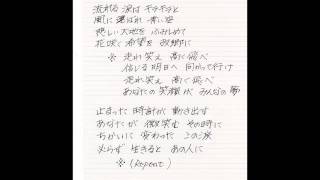 流れる涙は キラキラと
風に運ばれ 青い空
悲しい大地を ふみしめて
花咲く希望を お土産に
※ 走れ 笑え 高く飛べ
信じる明日へ 向かって行け
走れ 笑え 高く飛べ
あなたの笑顔が みんなの夢
止まった 時計が 動き出す
あなたが 微笑む その時に
ちかいに 変わった この涙
必らず 生きると あの人に
※ (Repeat)